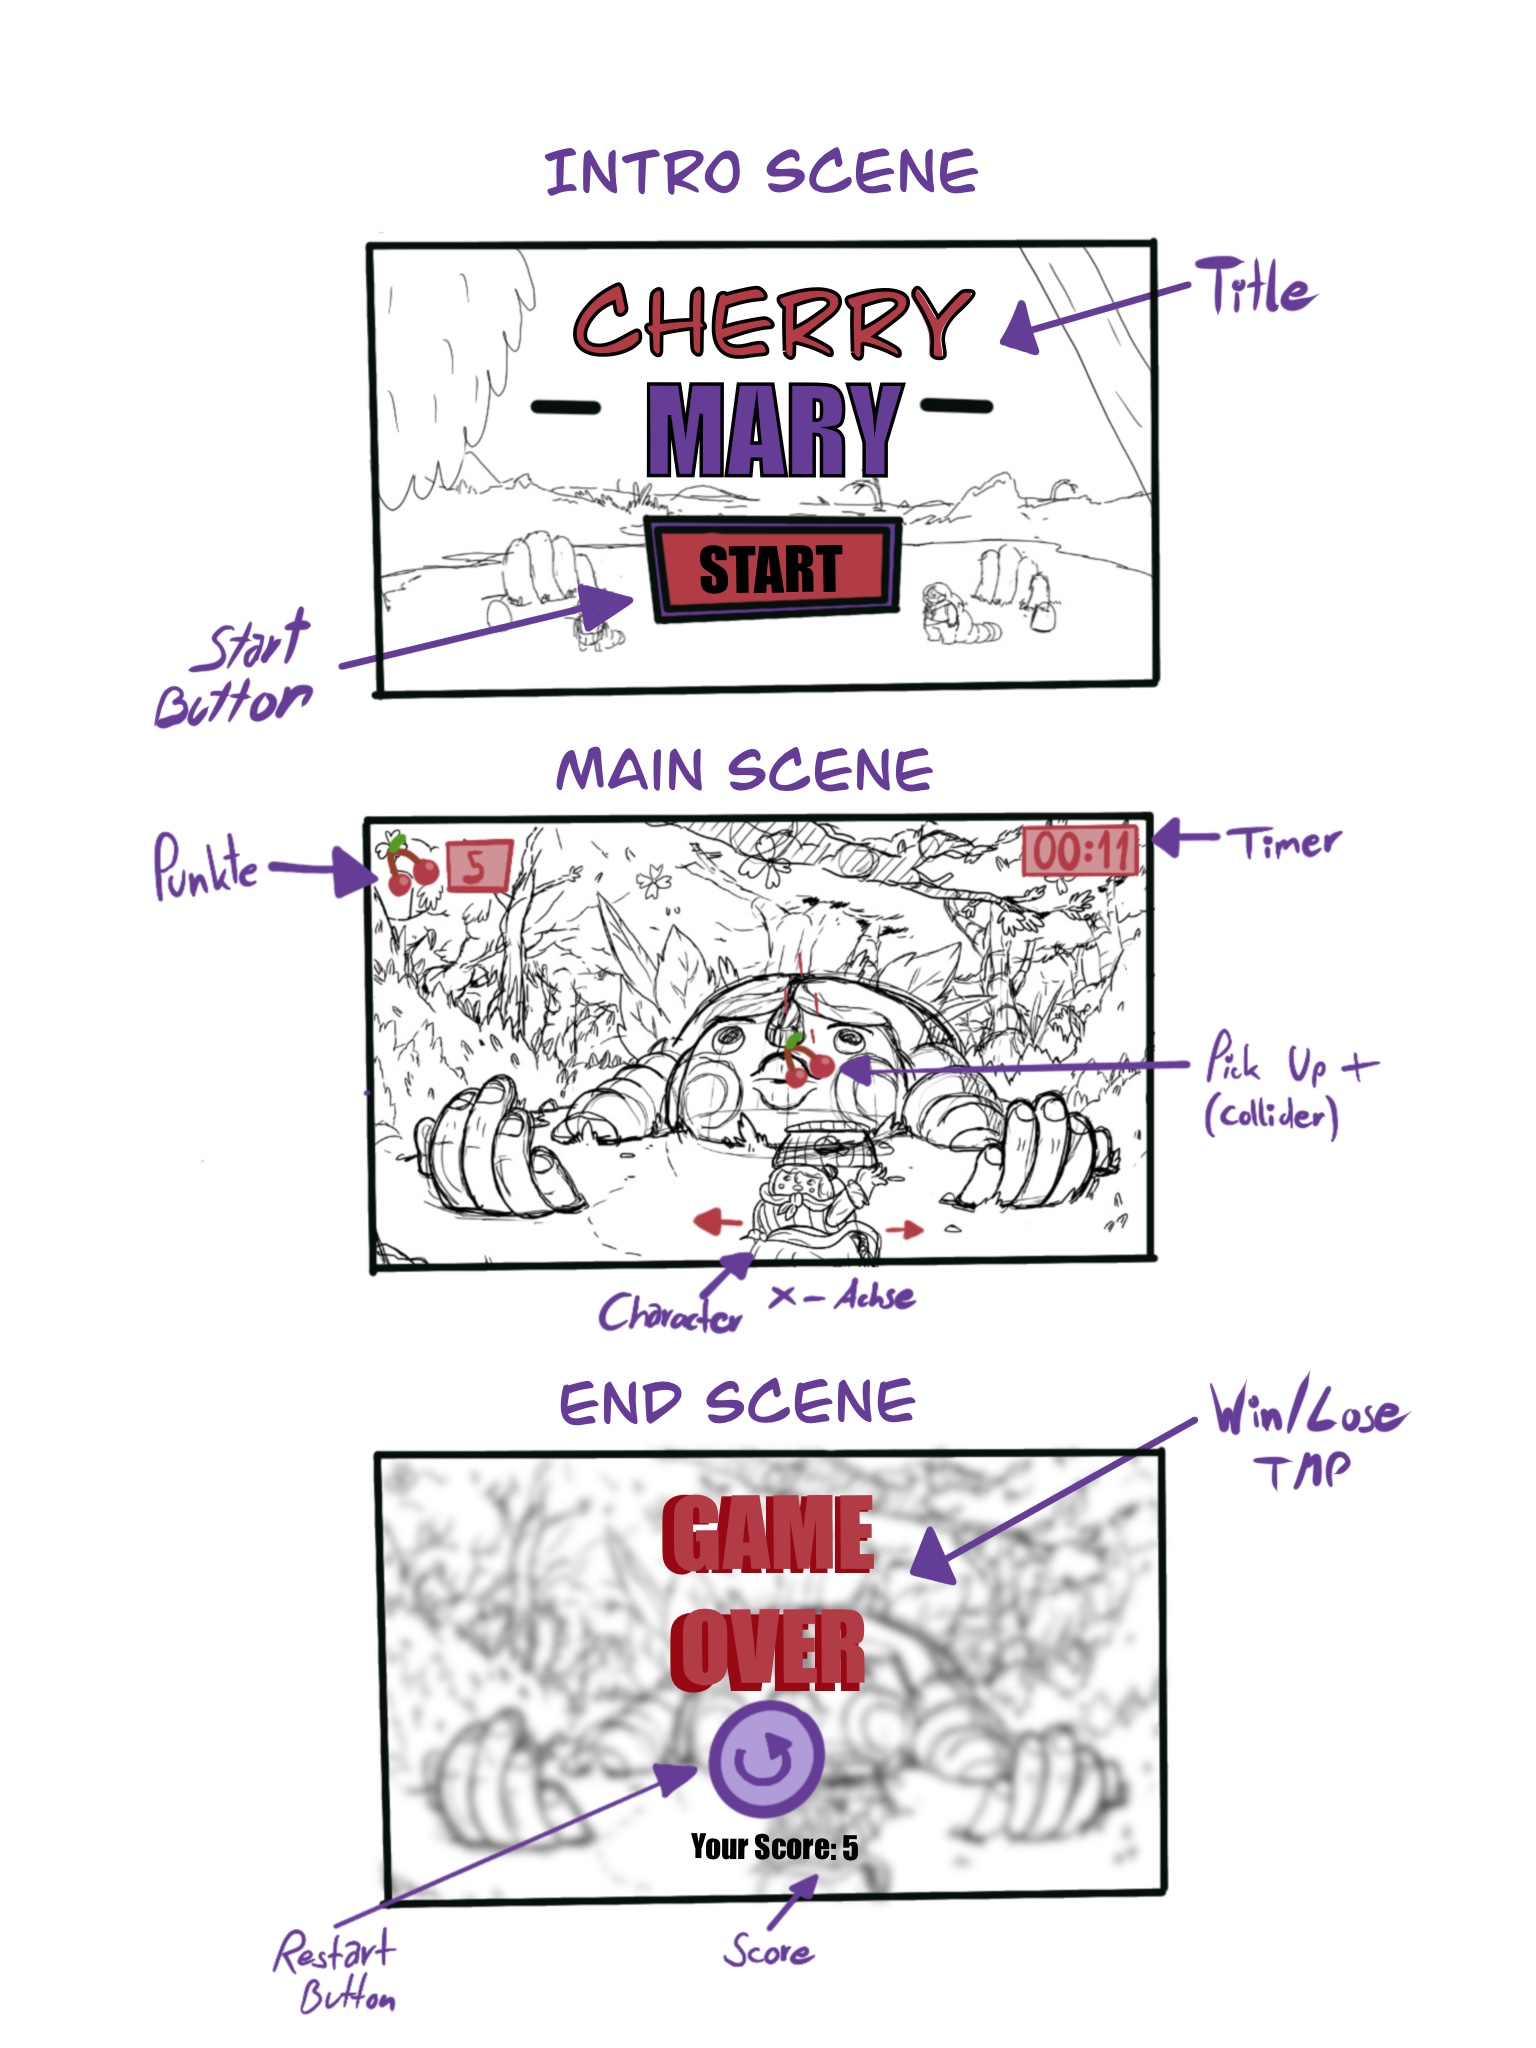 INTRO SCENE
Title
CHERRY
- MARY -
START
Start
Button
MAIN SCENE
Punkte
5
00:11
Timer
Pick Up +
(Collider)
Character
X-Achse
END SCENE
Win/Lose
TMP
GAME
OVER
Your Score: 5
Restart
Button
Score